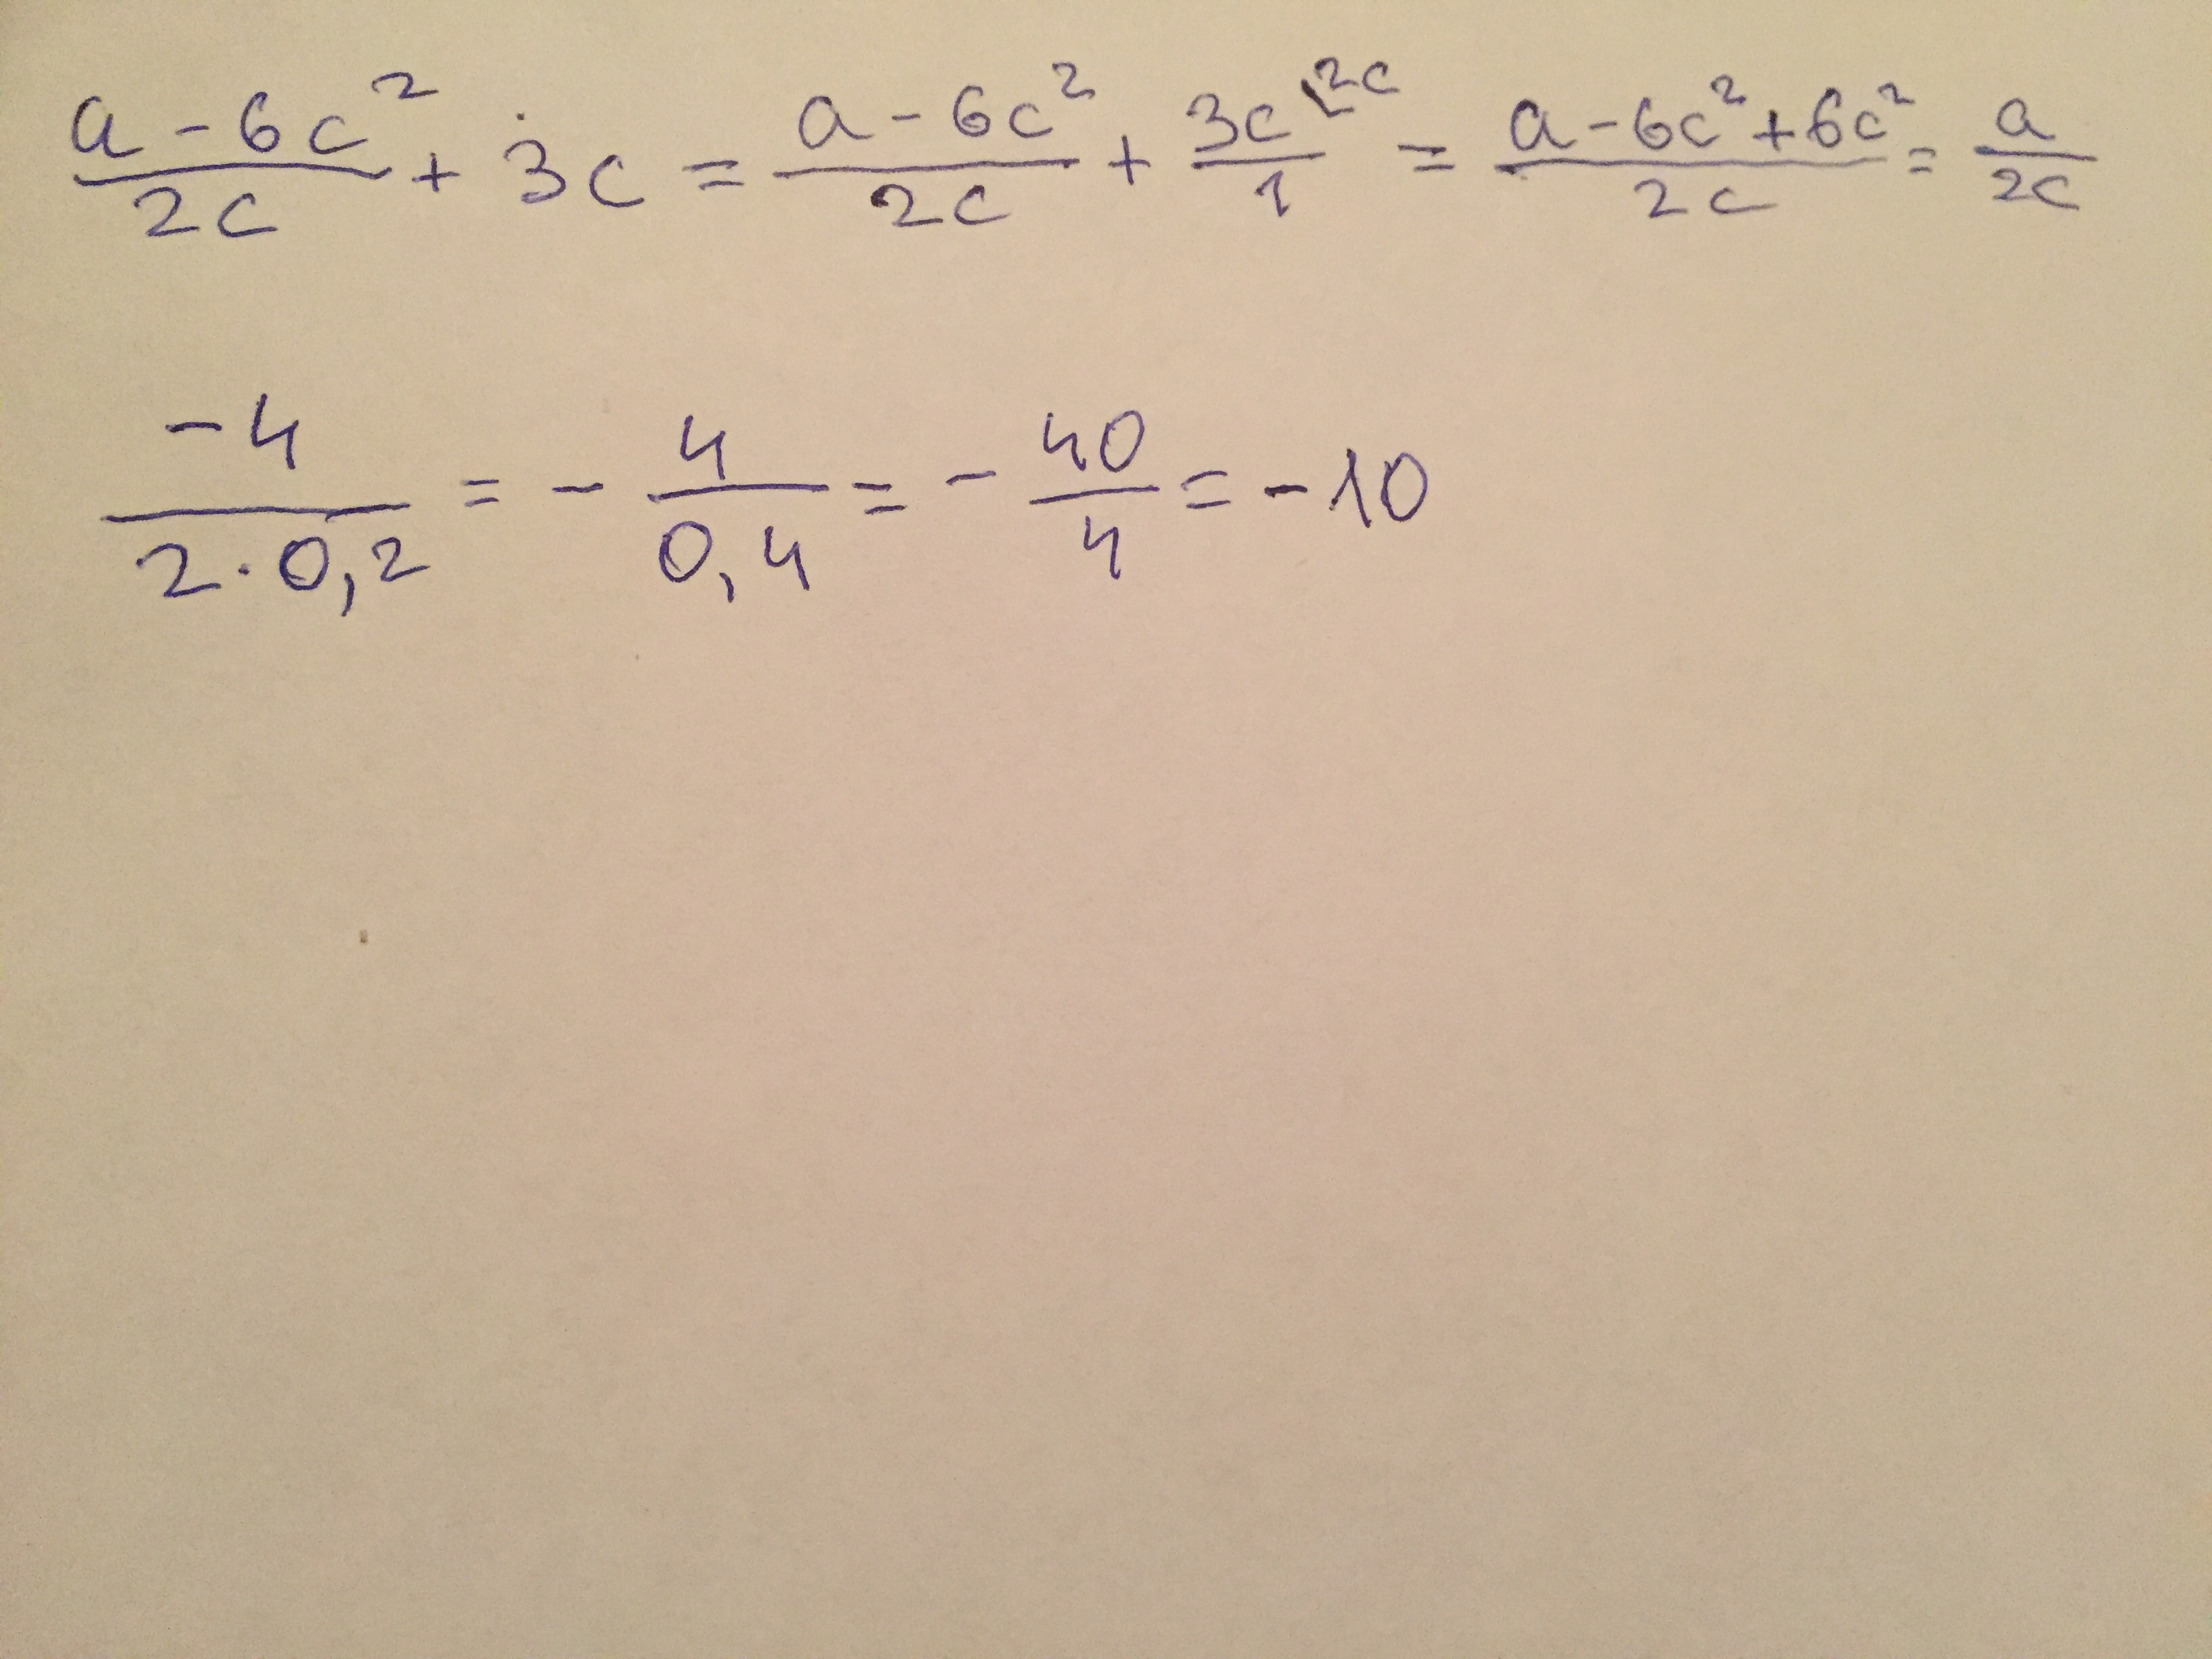 (a-6c²)/(2c) + 3c = (a-6c²)/(2c) + (3c\2c)/1 = (a-6c²+6c²)/(2c) = a/(2c)
(-4)/(2·0,2) = -4/(0,4) = -40/4 = -10